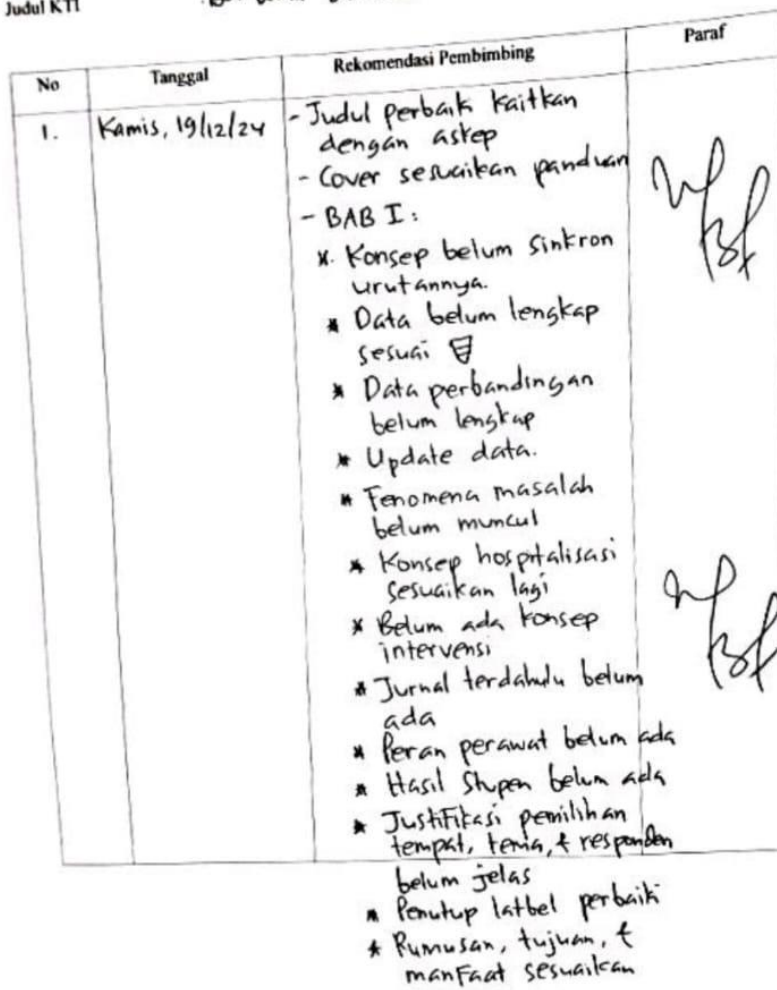 Judul KTI
No Tanggal Rekomendasi Pembimbing Paraf
1. Kamis, 19/12/24 - Judul perbaik kaitkan
dengan askep
- Cover sesuaikan panduan
- BAB I:
* Konsep belum sinkron
urutannya.
* Data belum lengkap
sesuai
* Data perbandingan
belum lengkap
* Update data.
* Fenomena masalah
belum muncul
* Konsep hospitalisasi
sesuaikan lagi
* Belum ada konsep
intervensi
* Jurnal terdahulu belum
ada
* Peran perawat belum ada
* Hasil Stupen belum ada
* Justifikasi pemilihan
tempat, tema, & responden
belum jelas
* Penutup latbel perbaiki
* Rumusan, tujuan, &
manfaat sesuaikan